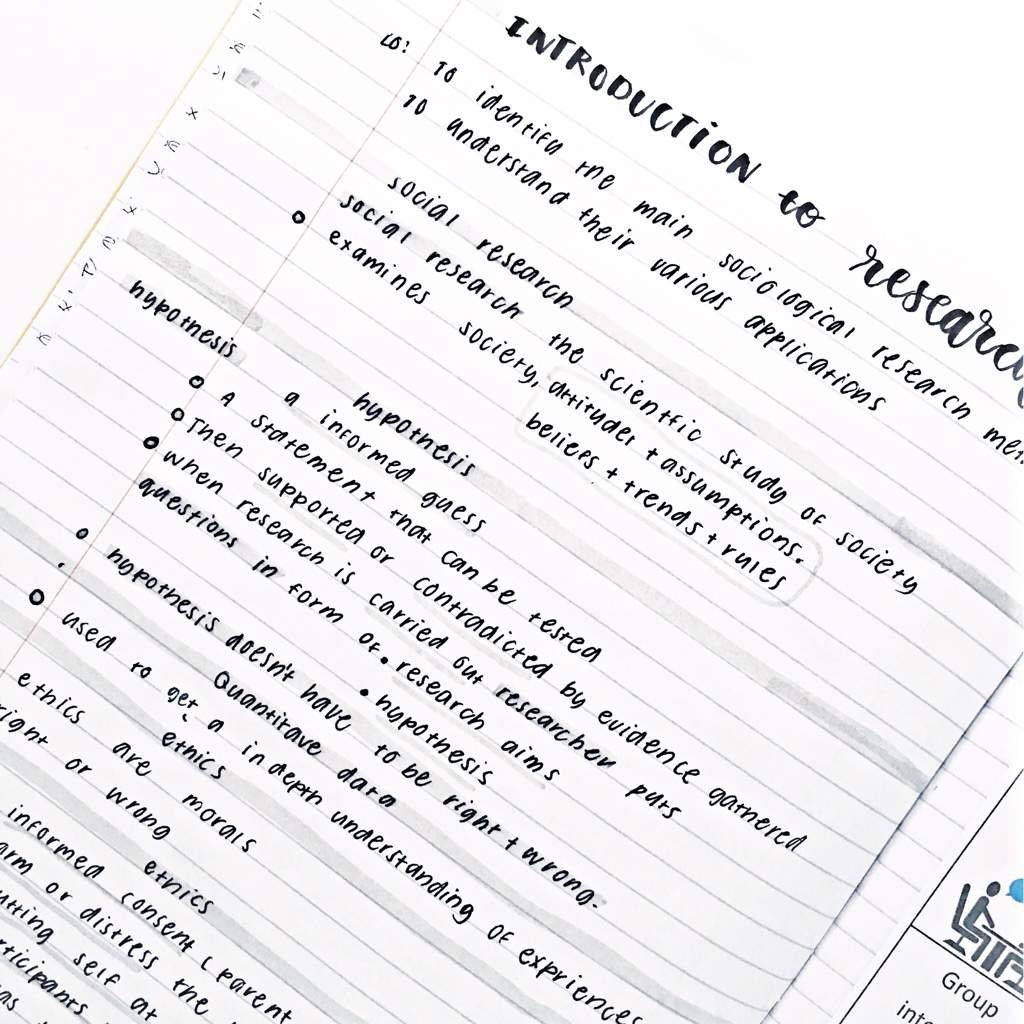 INTRODUCTION to
LO: TO identify the main sociological research
TO understand their various applications
social research
social research the scientific study of society
examines society, attitudes + assumptions.
beliefs + trends + rules
hypothesis
hypothesis
a informed guess
A statement that can be tested
Then supported or contradicted by evidence gathered
when research is carried out researcher puts
questions in form of • research aims
• hypothesis
hypothesis doesn't have to be right + wrong.
Quantitave data
used to get a in depth understanding of expriences
ethics
ethics are morals
right or wrong
ethics
informed consent (parent
or distress the
self at
Group